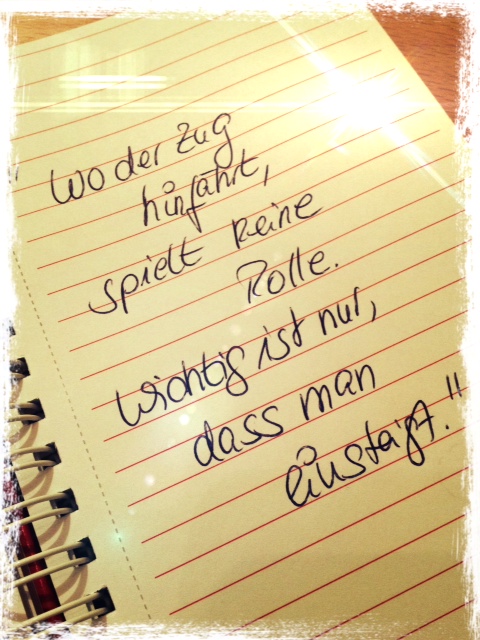 Wo der Zug
hinfährt,
spielt keine
Rolle.
Wichtig ist nur,
dass man
einsteigt."